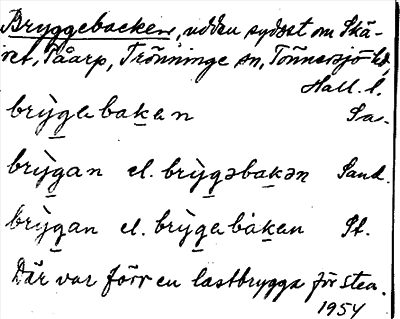 Bryggebacken, udden sydost om Skä-
ret, Påarp, Trönninge sn, Tönnersjö hd,
Hall. l.
brỳgabakan Sa.
brỳgan el. brỳgəbakən Sand.
brỳgan el. brỳgabàkan St.
Där var förr en lastbrygga för sten.
1954